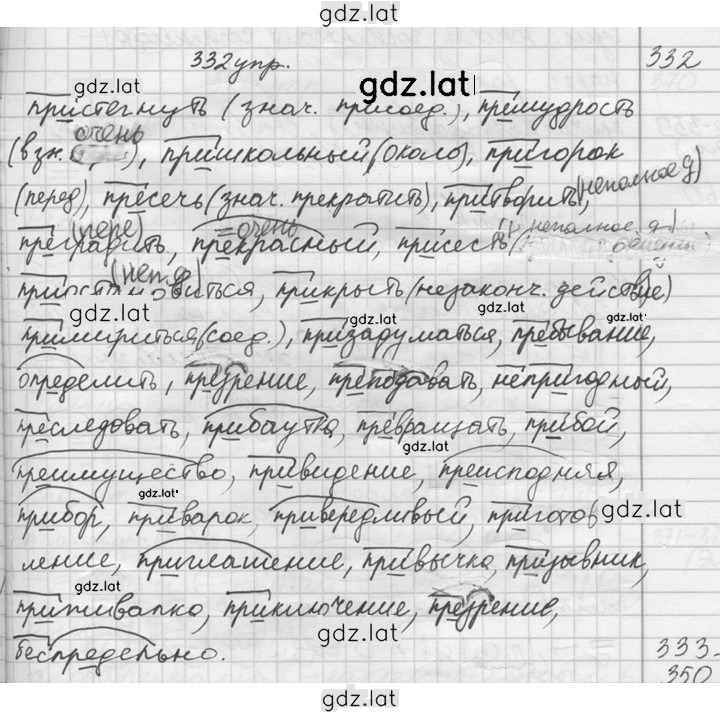 gdz.lat
332 упр. 332
gdz.lat gdz.lat
пристегнуть (знач. присоед.), премудрость
очень
(взн. ), пришкольный (около), пригорок
(перед), пресечь (знач. прекратить), притворить, (неполное д)
(пере) = очень
преградить, прекрасный, присесть (неполное д)
(неп. д)
приостановиться, прикрыть (незаконч. действие)
gdz.lat gdz.lat gdz.lat
примириться (соед.), призадуматься, пребывание,
определить, презрение, преподавать, непригодный,
gdz.lat
преследовать, прибаутка, превращать, прибой,
gdz.lat
преимущество, привидение, преисподняя,
gdz.lat
прибор, приварок, привередливый, приготов
gdz.lat
ление, приглашение, привычка, призывник,
gdz.lat
приживалка, приключение, презрение,
gdz.lat
беспредельно. 333-
350
gdz.lat